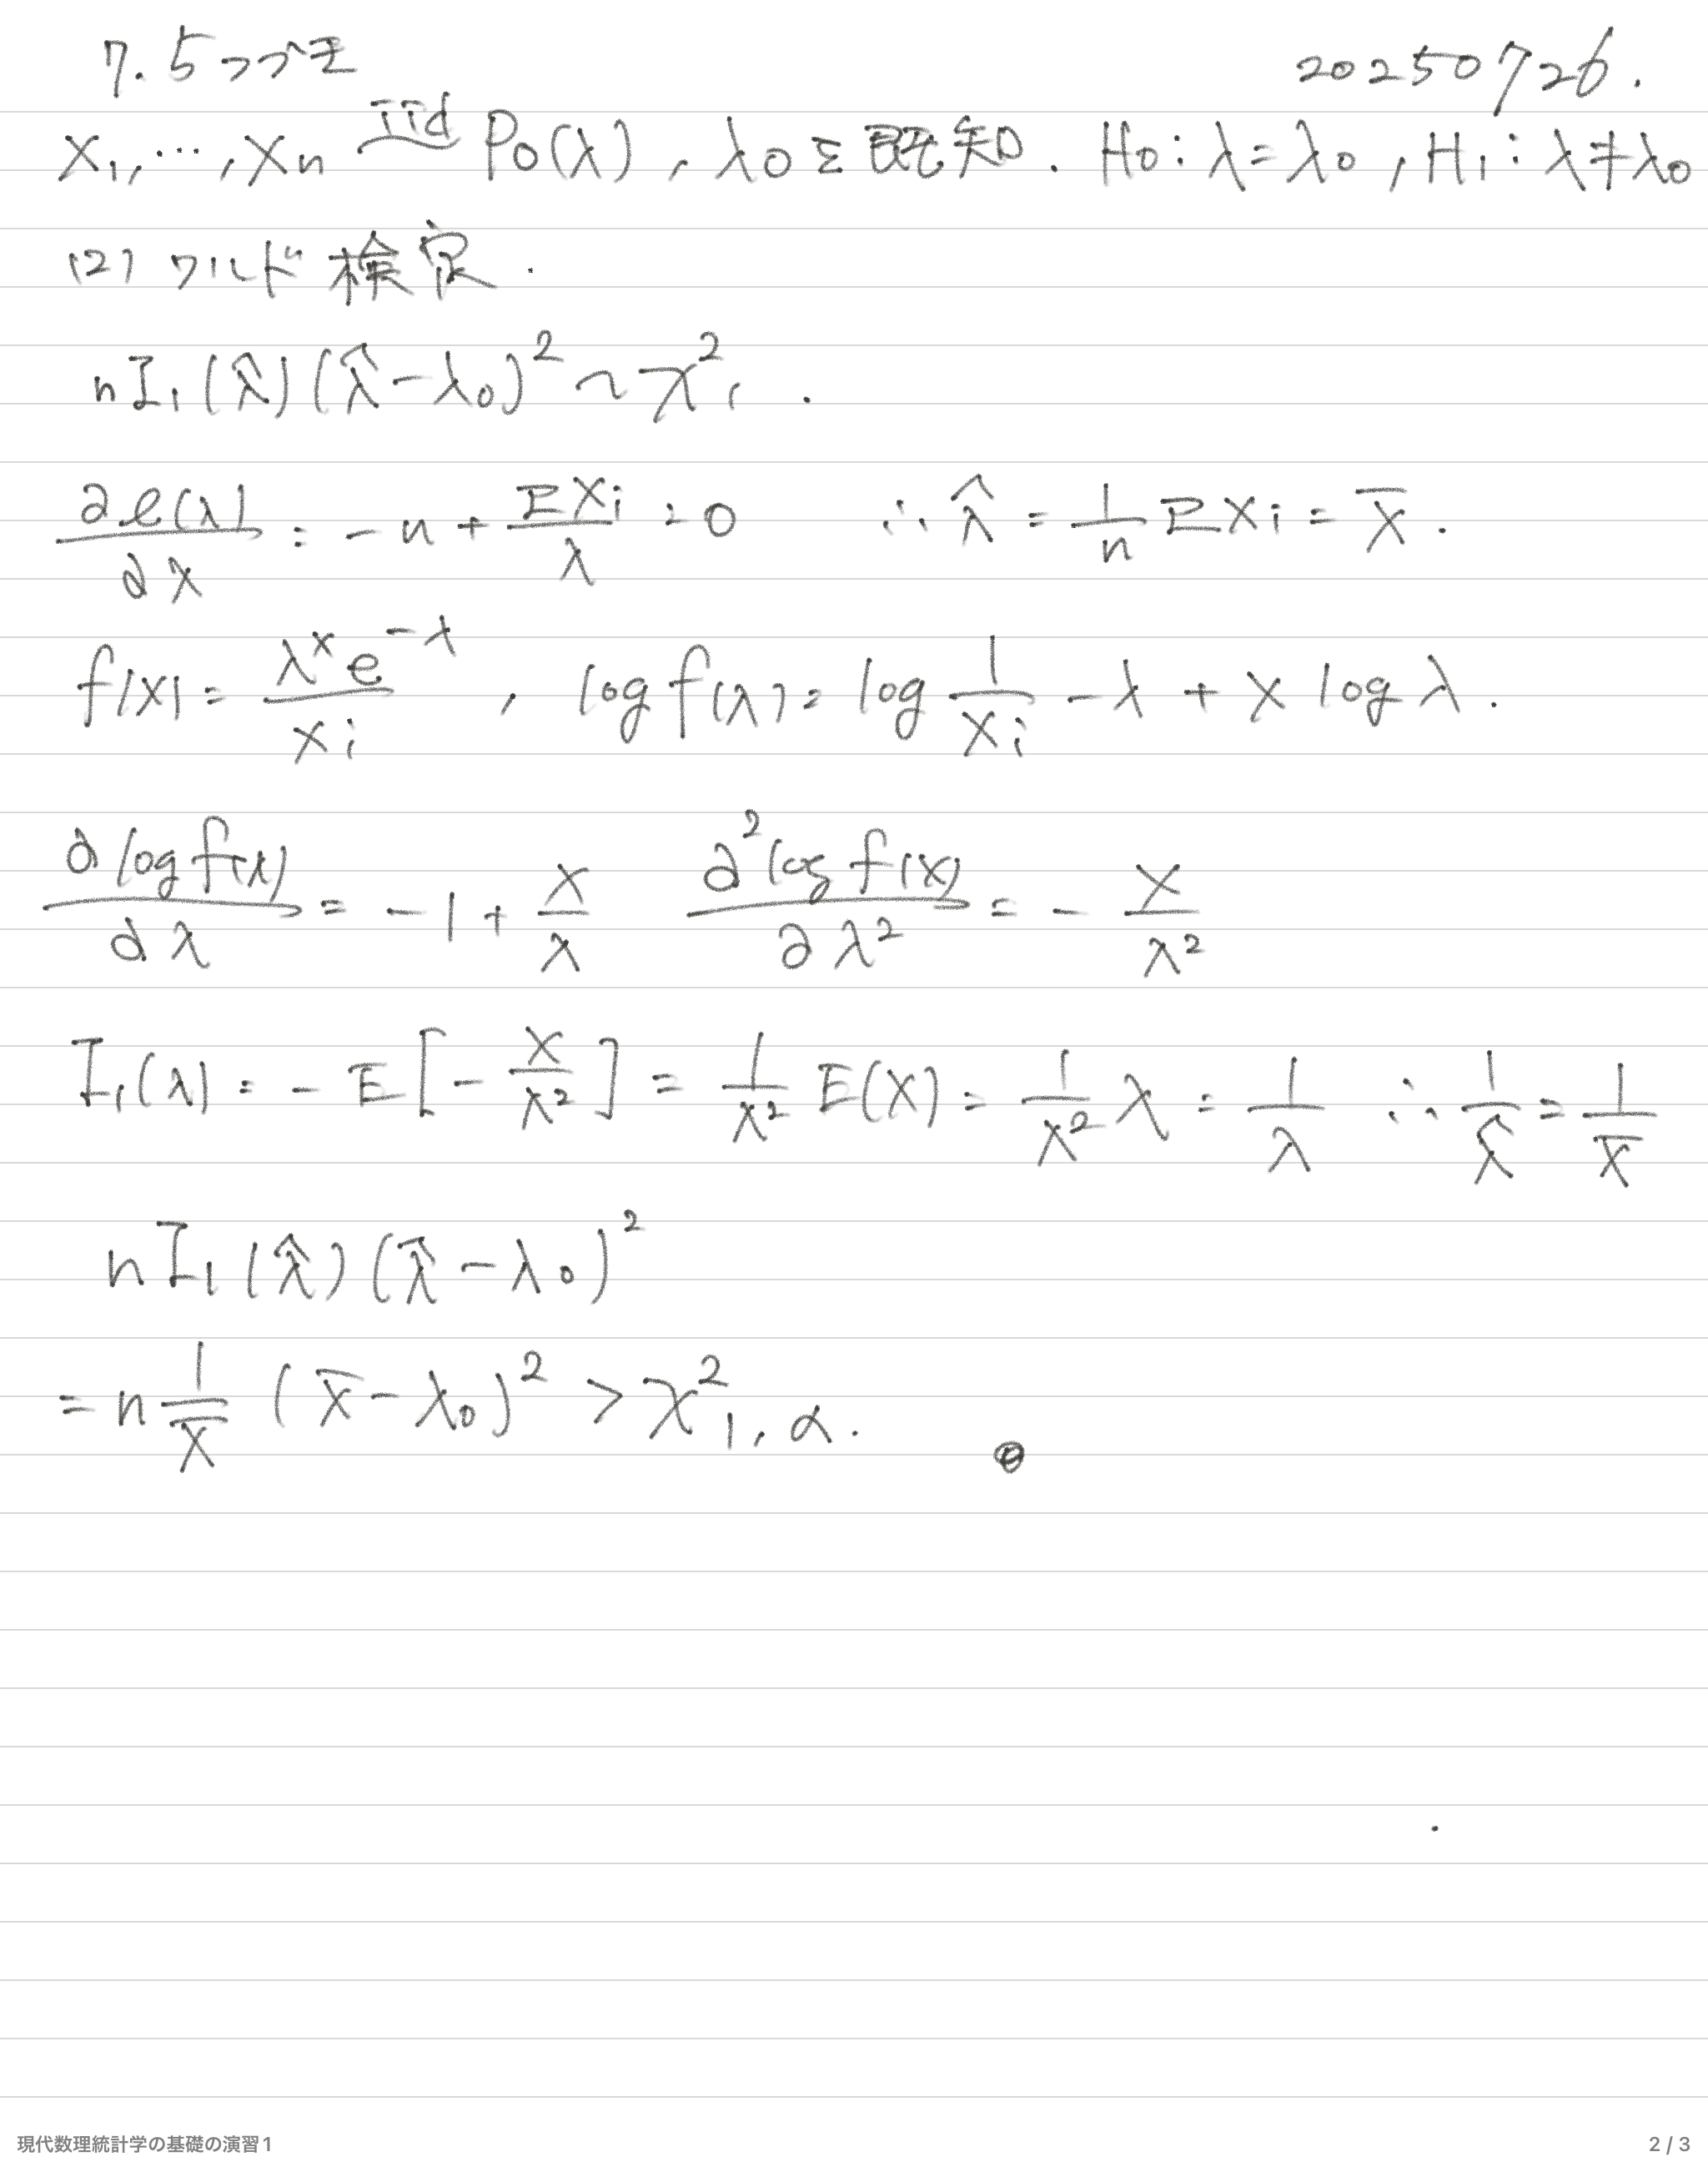 7.5つづき 20250726.
X1,…,Xn iid~ Po(λ), λ0を既知. H0:λ=λ0, H1:λ≠λ0
(2) ワルド検定.
nI1(λ̂)(λ̂-λ0)^2 ~ χ^2_1.
∂ℓ(λ)/∂λ = -n + ΣXi/λ = 0 ∴ λ̂ = 1/n ΣXi = X̄.
f(x) = λ^x e^-λ / x!, log f(λ) = log 1/x! - λ + x log λ.
∂log f(x)/∂λ = -1 + x/λ ∂^2 log f(x)/∂λ^2 = - x/λ^2
I1(λ) = -E[-X/λ^2] = 1/λ^2 E(X) = 1/λ^2 λ = 1/λ ∴ 1/λ̂ = 1/X̄
nI1(λ̂)(λ̂-λ0)^2
= n 1/X̄ (X̄-λ0)^2 > χ^2_1,α.
現代数理統計学の基礎の演習1 2 / 3